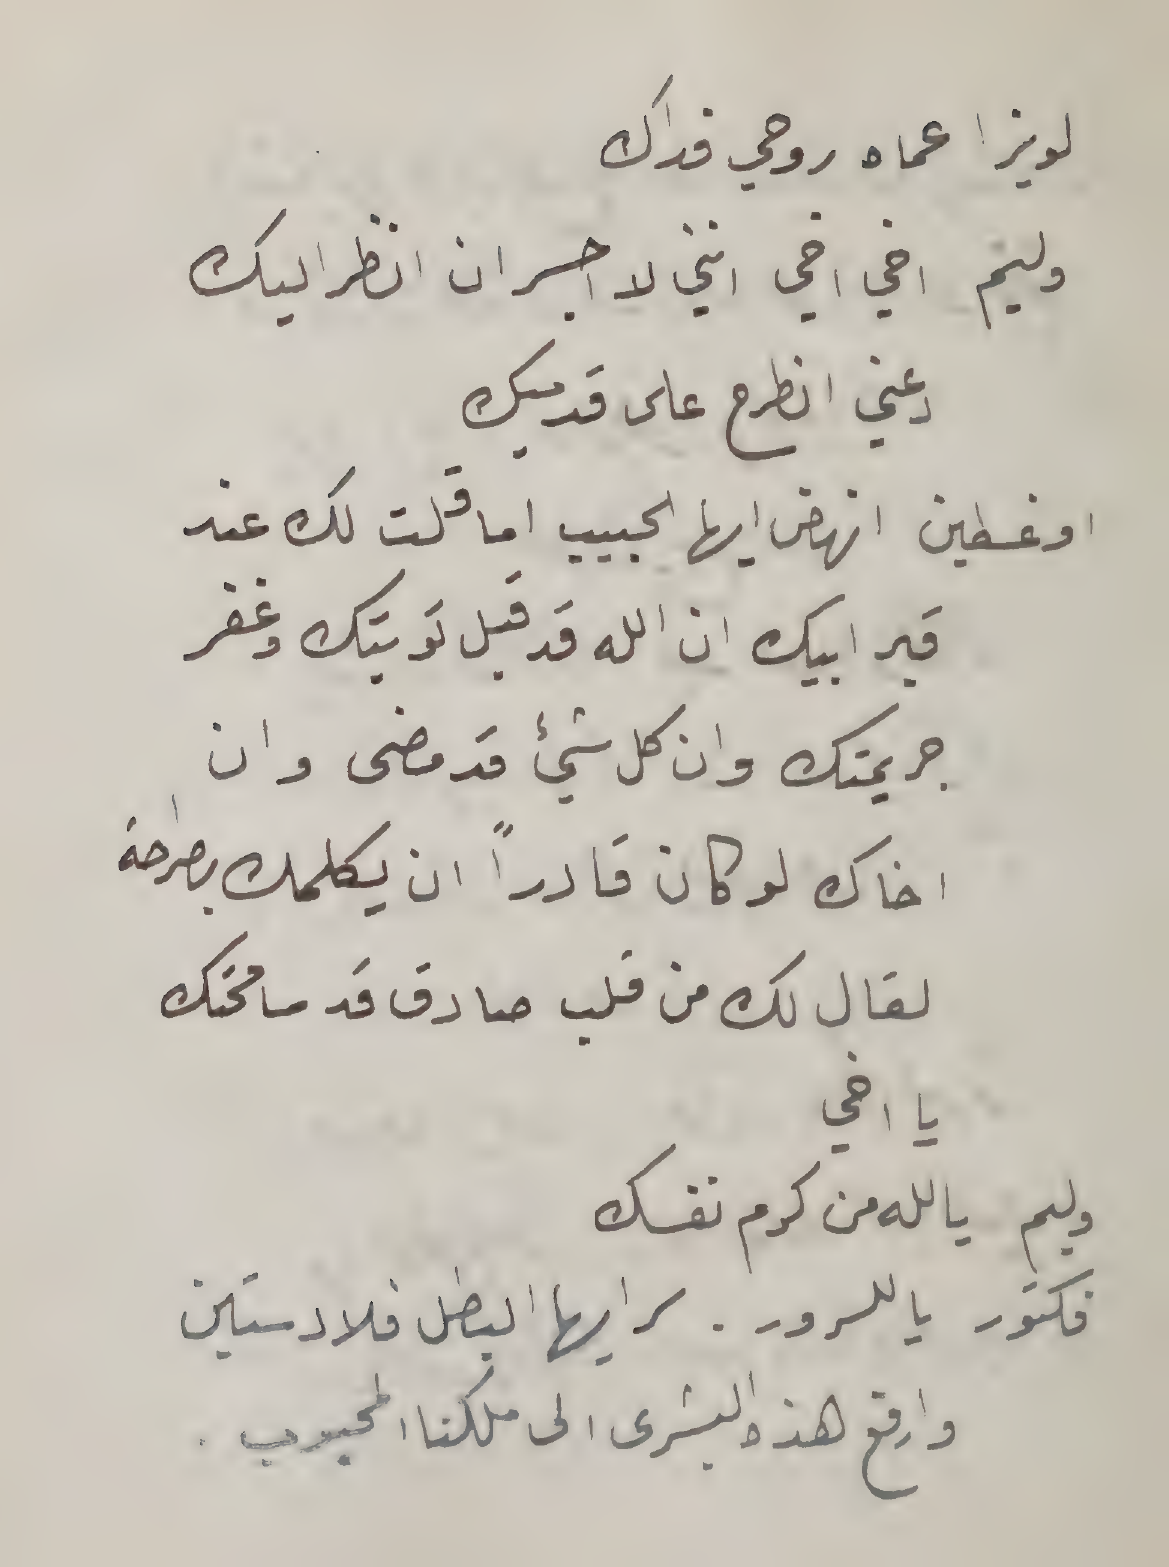 لويزا عماه روحي فداك
وليم اخي اخي انني لا اجسر ان انظر اليك
دعني انطرح على قدميك
اوغسطين انهض ايها الحبيب اما قلت لك عند
قبر ابيك ان الله قد قبل توبتك وغفر
جريمتك وان كل شيئ قد مضى وان
اخاك لو كان قادراً ان يكلمك بصراحة
لقال لك من قلب صادق قد سامحتك
يا اخي
وليم يالله من كرم نفسك
فكتور يا للسرور . سر ايها البطل فلادستين
وارفع هذه البشرى الى ملكنا المحبوب .